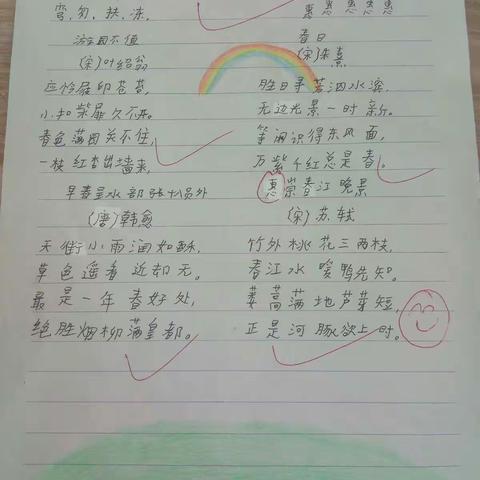 弯,勿,扶,冻,
惠 惠 惠 惠 惠
游园不值
(宋)叶绍翁
应怜屐印苍苔,
小扣柴扉久不开。
春色满园关不住,
一枝红杏出墙来,
早春呈水部张十八员外
(唐)韩愈
天街小雨润如酥,
草色遥看近却无。
最是一年春好处,
绝胜烟柳满皇都。
春日
(宋)朱熹
胜日寻芳泗水滨,
无边光景一时新。
等闲识得东风面,
万紫千红总是春。
惠崇春江晚景
(宋)苏轼
竹外桃花三两枝,
春江水暖鸭先知。
蒌蒿满地芦芽短,
正是河豚欲上时。